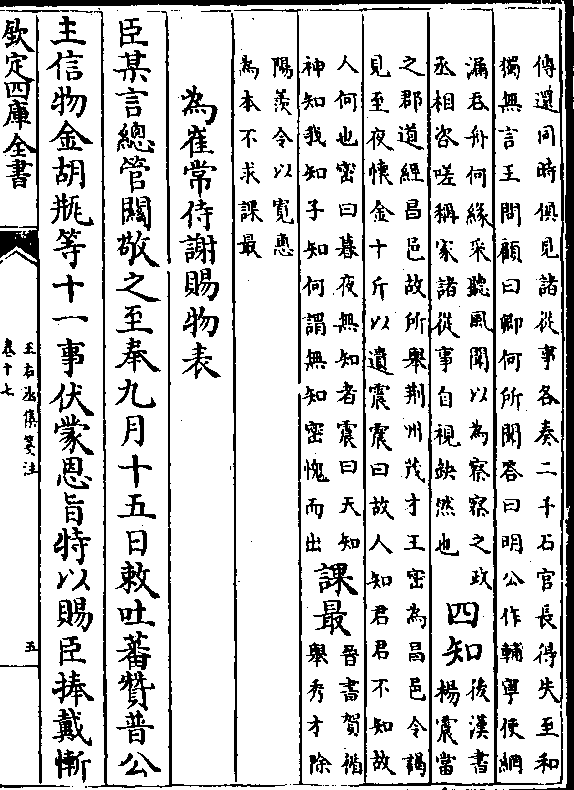 傳還同時俱見諸從事各奏二千石官長得失至和
獨無言王問顧曰卿何所聞荅曰明公作輔寧使網
漏吞舟何緣采聽風聞以為察察之政
丞相咨嗟稱家諸從事自視缺然也
四知
後漢書
楊震當
之郡道經昌邑故所舉荆州茂才王密為昌邑令謁
見至夜懷金十斤以遺震震曰故人知君君不知故
人何也密曰暮夜無知者震曰天知
神知我知子知何謂無知密愧而出
課最
晉書賀循
舉秀才除
陽羨令以寛惠
為本不求課最
為崔常侍謝賜物表
臣某言總管闗敬之至奉九月十五日敕吐蕃贊普公
主信物金胡瓶等十一事伏蒙恩旨特以賜臣捧戴慚
欽定四庫全書
王右丞集箋注
卷十七
五